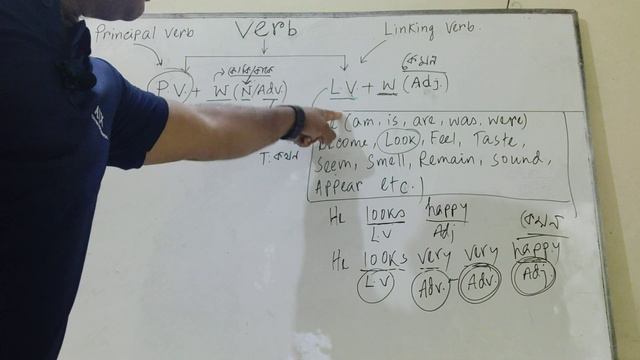 Principal verb Verb Linking Verb.
কেমন
P V. + W (N/Adv. L V. + W (Adj.)
(am, is, are, was, were)
T. কখন Look, Feel, Taste,
Seem, Smell, Remain, Sound,
Appear etc.)
He looks happy কেমন
LV Adj
He looks very very happy
LV Adv. Adv. Adj.